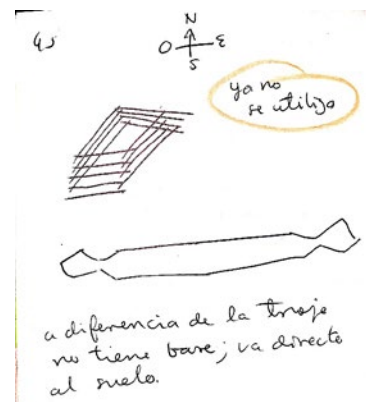 45
N
O E
S
ya no
se utiliza
a diferencia de la troje
no tiene base; va directo
al suelo.